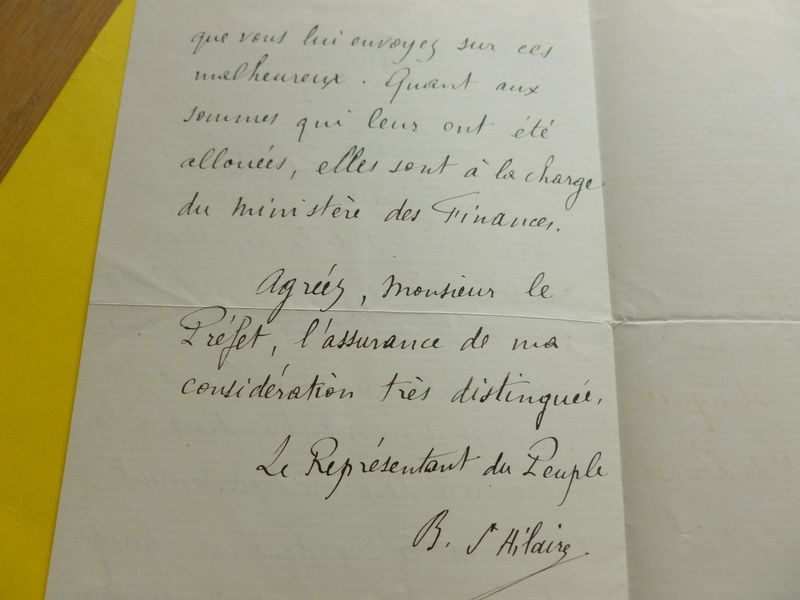 que vous lui envoyez sur ces
malheureux. Quant aux
sommes qui leur ont été
allouées, elles sont à la charge
du Ministère des Finances.
Agréez, Monsieur le
Préfet, l'assurance de ma
considération très distinguée.
Le Représentant du Peuple
B. St Hilaire